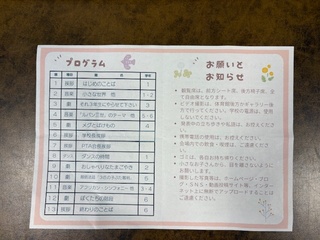 プログラム
順 種目 題名 学年
1 挨拶 はじめのことば 1
2 音楽 小さな世界 他 1・2
3 劇 それ3年生にやらせて下さい 3
4 音楽 「ルパン三世」のテーマ 他 5・6
5 劇 メグとばけもの 4
6 挨拶 学校長挨拶
7 挨拶 PTA会長挨拶
8 ダンス ダンスの時間 1
9 劇 おしゃべりなたまごやき 2
10 劇
11 音楽 アフリカンシンフォニー 他 3・4
12 劇 ぼくたち 6
13 挨拶 終わりのことば 6
お願いと
お知らせ
・ 観覧席は、前方シート席、後方椅子席、全
て自由席となります。
・ ビデオ撮影は、体育館後方かギャラリー後
方で行ってください。学校の電源は、使用
しないでください。
・ 発表中の立ち歩きや私語は、お控えくださ
い。
・ 携帯電話の使用は、お控えください。
・ 会場内での飲食・喫煙は、ご遠慮くださ
い。
・ ゴミは、各自お持ち帰りください。
・ 小さなお子さんから、目を離さないように
お願いします。
・ 撮影した写真等は、ホームページ・ブロ
グ・SNS・動画投稿サイト等、インターネッ
ト上に無断でアップロードすることは
ご遠慮ください。